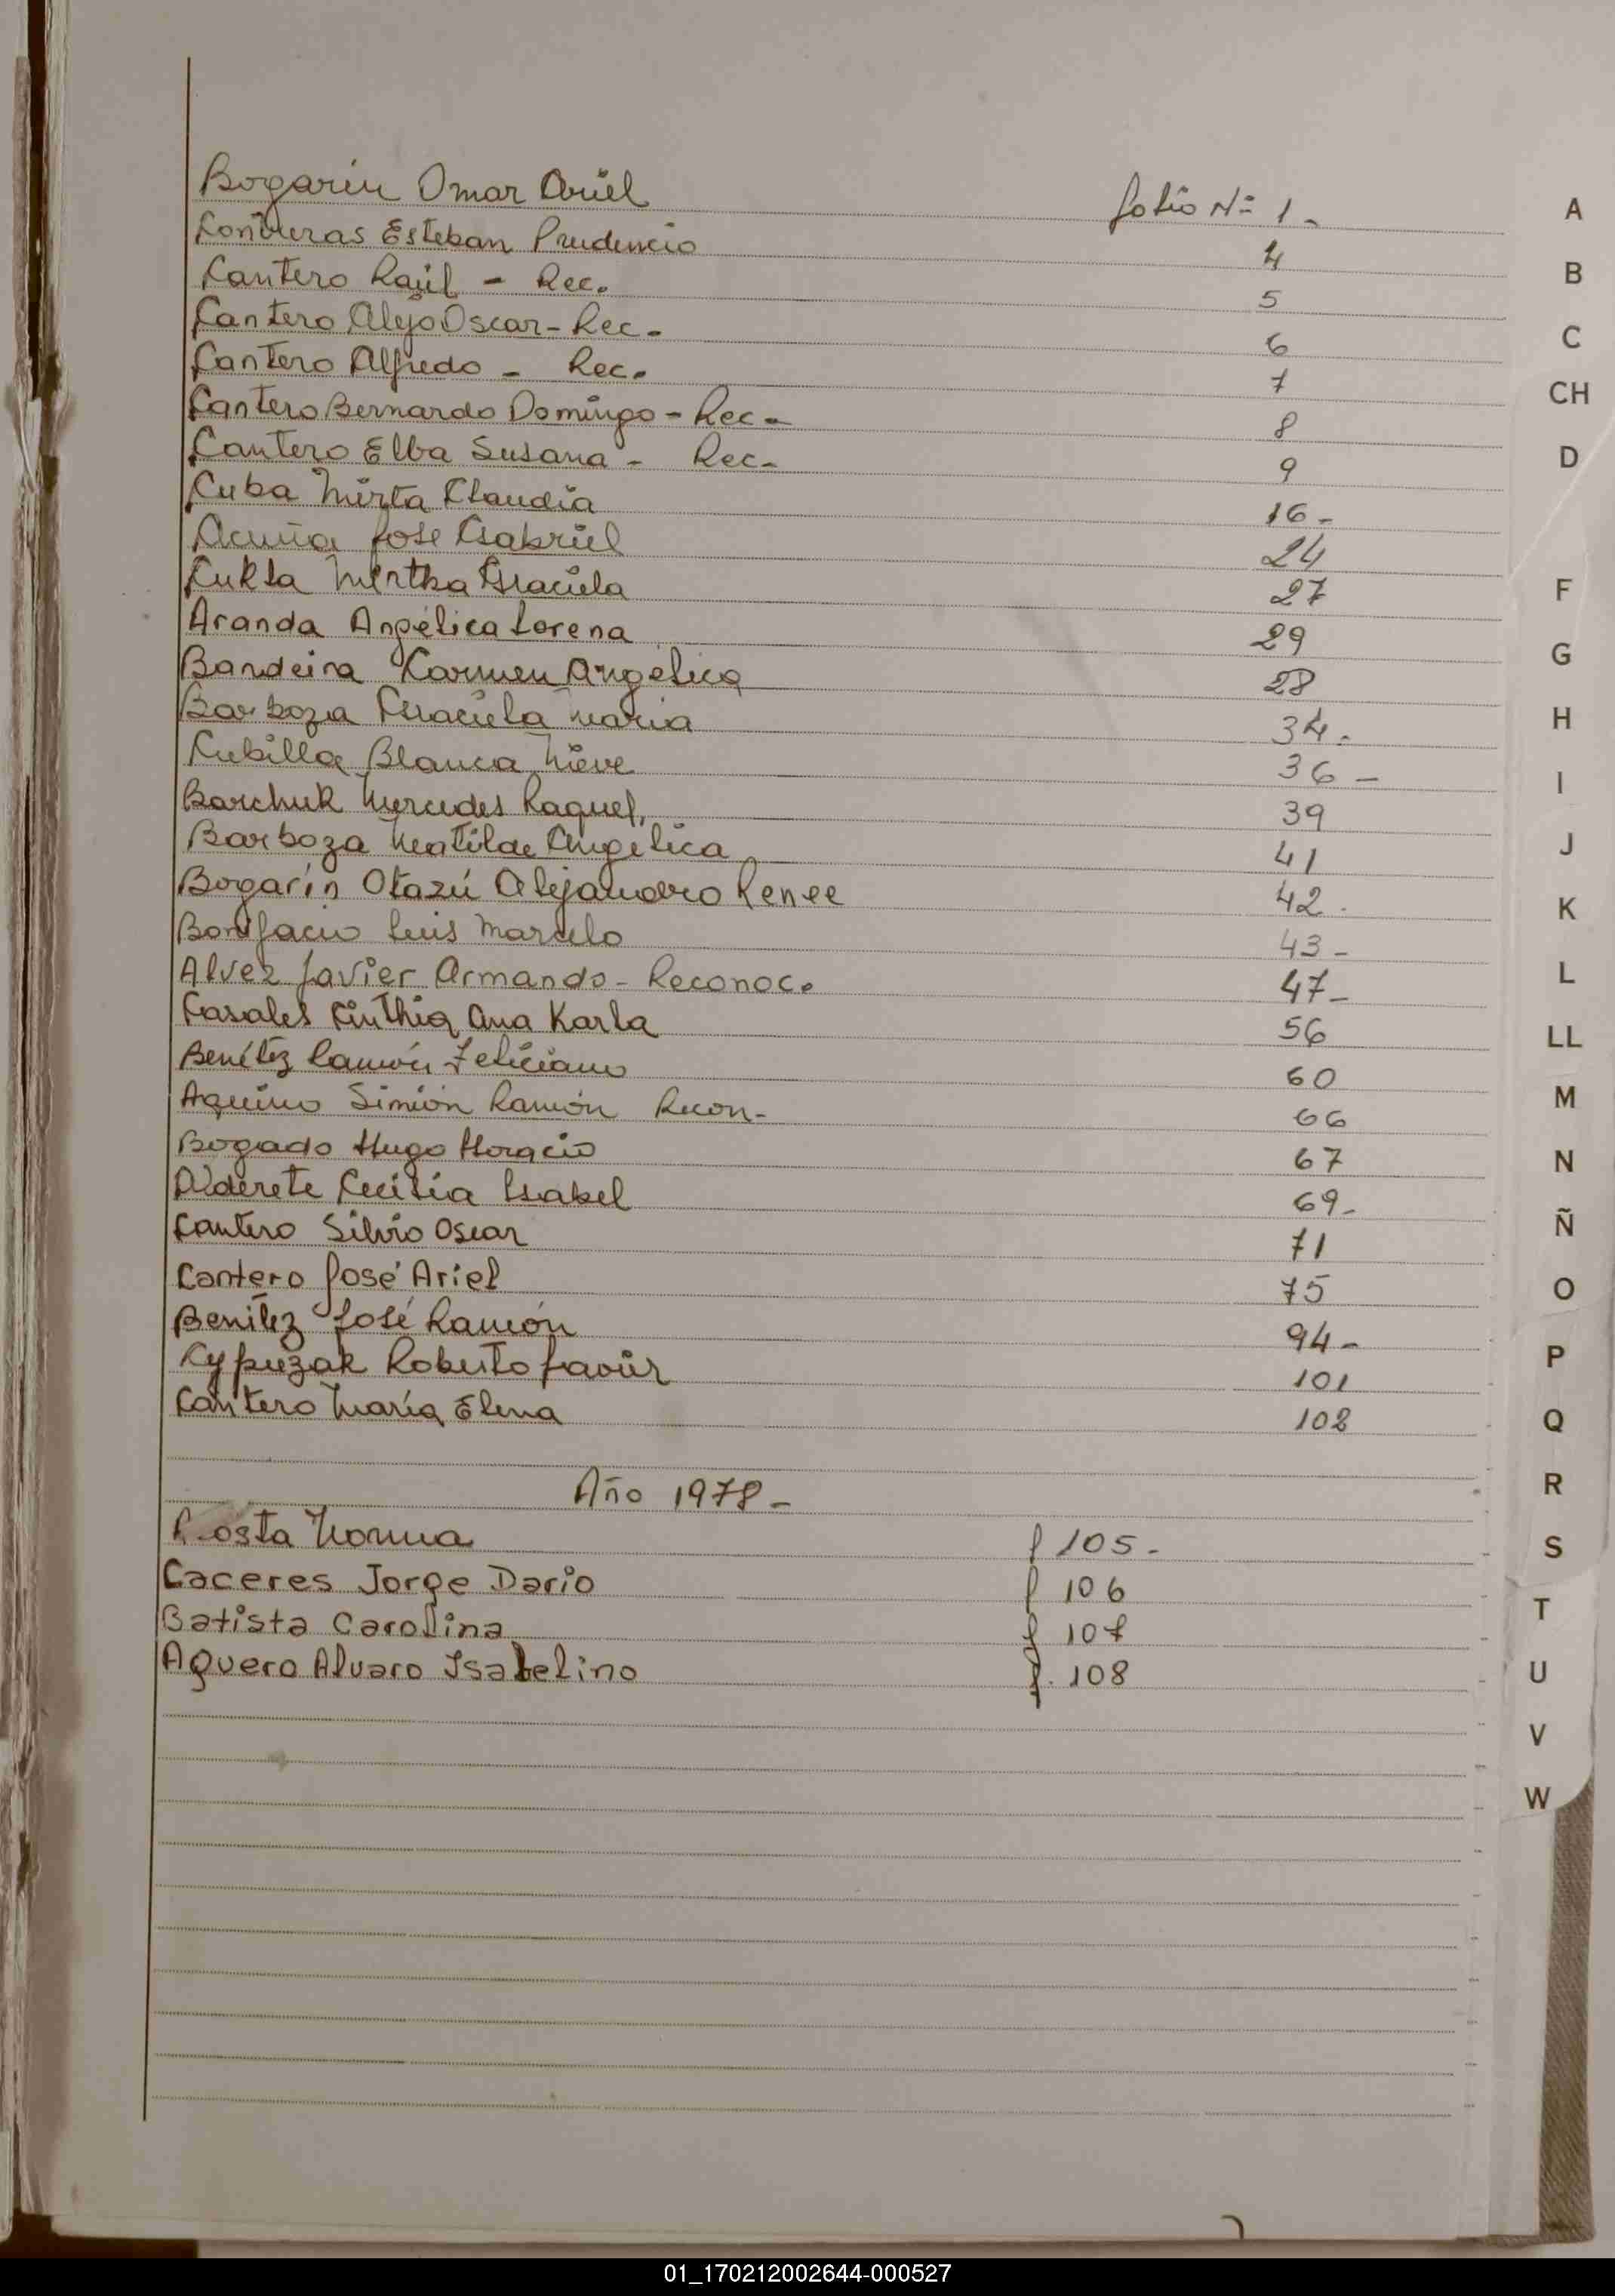 Bogarin Omar Ariel folio Nº 1-
Contreras Esteban Prudencio 4
Cantero Raúl - Rec. 5
Cantero Alejo Oscar - Rec. 6
Cantero Alfredo - Rec. 7
Cantero Bernardo Domingo - Rec. 8
Cantero Elba Susana - Rec. 9
Cuba Mirta Claudia 16-
Acuña Jose Gabriel 24
Kukla Mirtha Graciela 27
Aranda Angélica Lorena 29
Bandeira Carmen Angélica 28
Barboza Graciela Maria 34.
Cubilla Blanca Nieve 36-
Barchuk Mercedes Raquel, 39
Barboza Matilde Angelica 41
Bogarín Otazú Alejandro Renee 42.
Bonifacio Luis Marcelo 43-
Alvez Javier Armando - Reconoc. 47-
Casales Cinthia Ana Karla 56
Benítez Ramón Feliciano 60
Aquino Simión Ramón Recon- 66
Bogado Hugo Horacio 67
Alderete Cecilia Isabel 69-
Cantero Silvio Oscar 71
Cantero José Ariel 75
Benítez José Ramón 94-
Roberto Javier 101
Cantero María Elena 102
Año 1978-
Costa Norma f 105-
Caceres Jorge Dario f 106
Batista Carolina f 107
Aguero Alvaro Isabelino f. 108
A
B
C
CH
D
F
G
H
I
J
K
L
LL
M
N
Ñ
O
P
Q
R
S
T
U
V
W
01_170212002644-000527